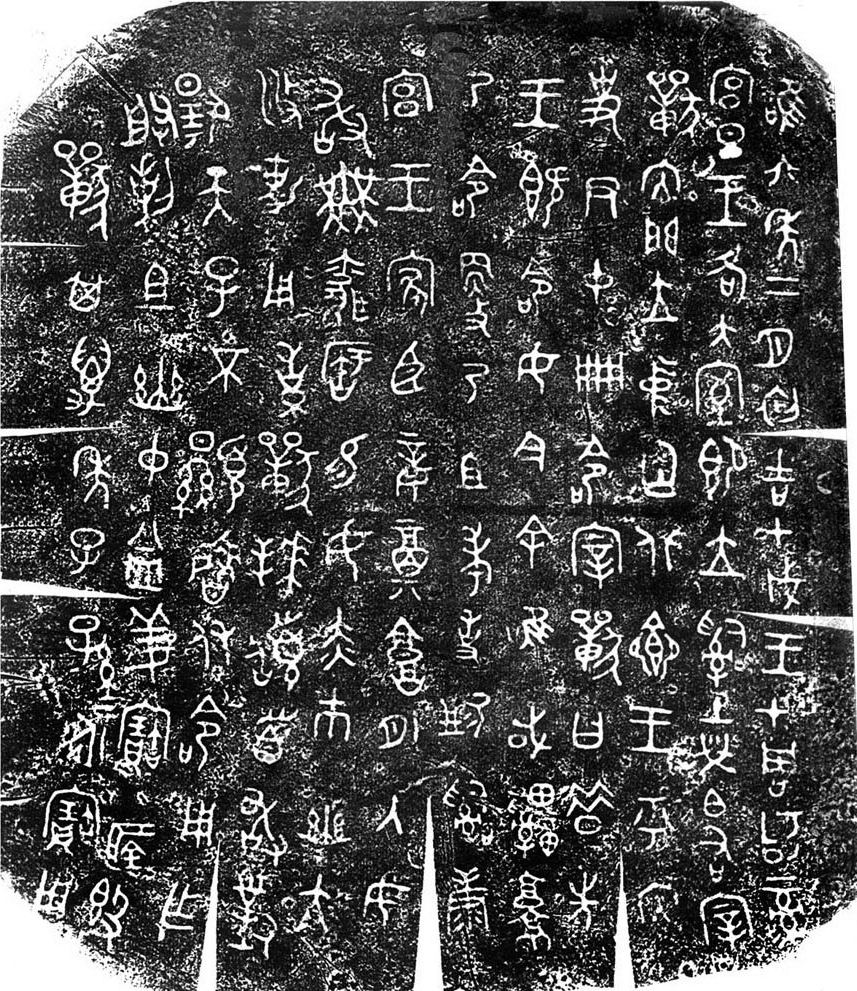 唯六年二月初吉甲戌王才周師彔
宮旦王各大室即立𤔲土榮白右宰
獸內門立中廷北鄉王乎內
史尹中冊命宰獸曰昔先
王既命女今余唯或𤕌𩫨
乃命更乃且考事𤔲康
宮王家臣妾夐庸外入毋
敢無聞知易女赤巿幽亢
攸勒用事獸拜𩒨首敢對
揚天子不顯魯休命用乍
朕剌且幽中益姜寶匜簋
獸其萬年子子孫永寶用